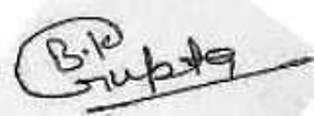 B.K
Gupta